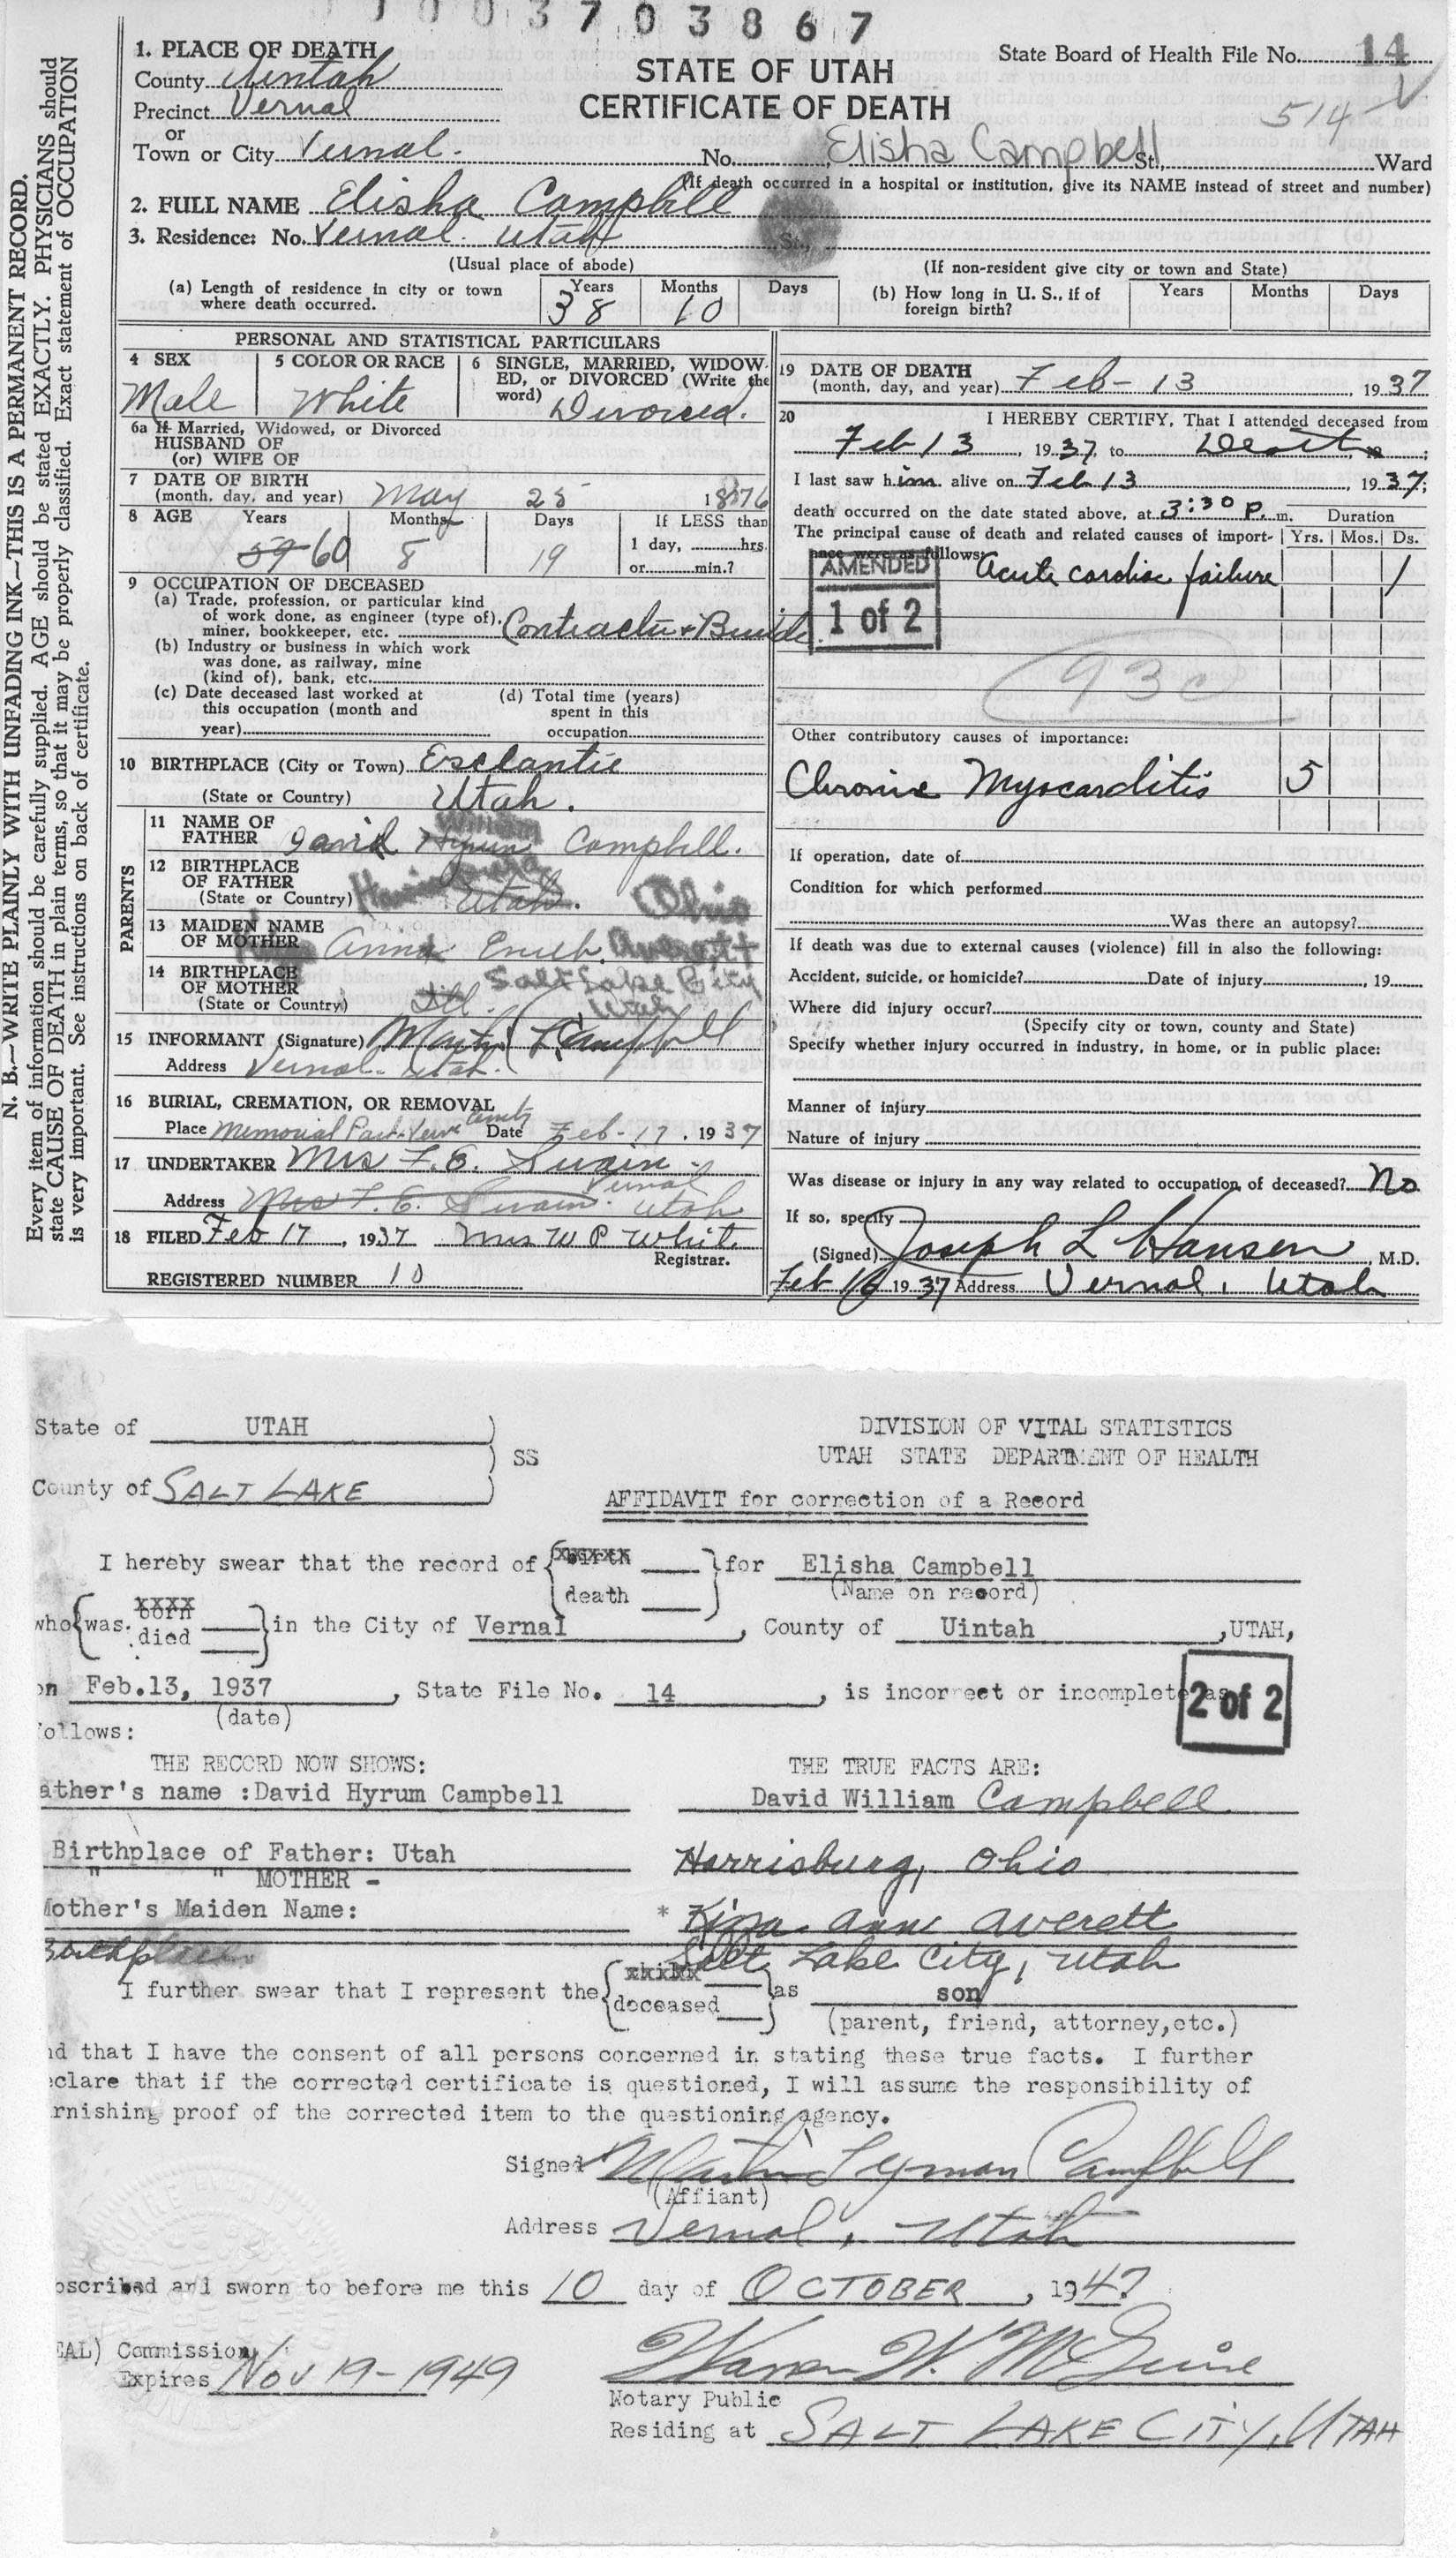 0003703867
1. PLACE OF DEATH
County Uintah
Precinct Vernal
or
Town or City Vernal. No. Elisha Campbell St., Ward
STATE OF UTAH
CERTIFICATE OF DEATH
State Board of Health File No. 14
514
(If death occurred in a hospital or institution, give its NAME instead of street and number)
2. FULL NAME Elisha Campbell
3. Residence: No. Vernal. Utah St.,
(Usual place of abode) (If non-resident give city or town and State)
(a) Length of residence in city or town where death occurred. Years 38 Months 10 Days
(b) How long in U. S., if of foreign birth? Years Months Days
N. B.—WRITE PLAINLY WITH UNFADING INK—THIS IS A PERMANENT RECORD.
Every item of information should be carefully supplied. AGE should be stated EXACTLY. PHYSICIANS should
state CAUSE OF DEATH in plain terms, so that it may be properly classified. Exact statement of OCCUPATION
is very important. See instructions on back of certificate.
PERSONAL AND STATISTICAL PARTICULARS
4 SEX Male
5 COLOR OR RACE White
6 SINGLE, MARRIED, WIDOWED, or DIVORCED (Write the word) Divorced.
6a If Married, Widowed, or Divorced
HUSBAND OF
(or) WIFE OF
7 DATE OF BIRTH
(month, day, and year) May 25 1876
8 AGE Years 59 60 Months 8 Days 19 If LESS than
1 day, hrs.
or min.?
9 OCCUPATION OF DECEASED
(a) Trade, profession, or particular kind
of work done, as engineer (type of),
miner, bookkeeper, etc. Contractu + Builde.
(b) Industry or business in which work
was done, as railway, mine
(kind of), bank, etc.
(c) Date deceased last worked at
this occupation (month and
year)
(d) Total time (years)
spent in this
occupation
10 BIRTHPLACE (City or Town) Esclantie
(State or Country) Utah.
PARENTS
11 NAME OF
FATHER David Hyrum William Campbell.
12 BIRTHPLACE
OF FATHER
(State or Country) Utah. Ohio
13 MAIDEN NAME
OF MOTHER Anna Averett
14 BIRTHPLACE
OF MOTHER
(State or Country) Ill. Salt Lake City
Utah
15 INFORMANT (Signature) Martin L Campbell
Address Vernal. Utah.
16 BURIAL, CREMATION, OR REMOVAL
Place Memorial Park Date Feb-17, 1937
17 UNDERTAKER Mrs F. E. Swain
Address Mrs F. E. Swain. Vernal Utah
18 FILED Feb 17, 1937 Mrs W P White
Registrar.
REGISTERED NUMBER 10
19 DATE OF DEATH
(month, day, and year) Feb-13 1937
20 I HEREBY CERTIFY, That I attended deceased from
Feb 13, 1937, to Death
I last saw him alive on Feb 13, 1937;
death occurred on the date stated above, at 3:30 P. m. Duration
The principal cause of death and related causes of importance were as follows: Yrs. Mos. Ds.
AMENDED
1 of 2
Acute cardiac failure 1
93c
Other contributory causes of importance:
Chronic Myocarditis 5
If operation, date of
Condition for which performed
Was there an autopsy?
If death was due to external causes (violence) fill in also the following:
Accident, suicide, or homicide? Date of injury, 19
Where did injury occur?
(Specify city or town, county and State)
Specify whether injury occurred in industry, in home, or in public place:
Manner of injury
Nature of injury
Was disease or injury in any way related to occupation of deceased? No
If so, specify
(Signed) Joseph L Hansen, M.D.
Feb 16 1937 Address Vernal, Utah
State of UTAH
SS
County of SALT LAKE
DIVISION OF VITAL STATISTICS
UTAH STATE DEPARTMENT OF HEALTH
AFFIDAVIT for correction of a Record
I hereby swear that the record of birth death for Elisha Campbell
(Name on record)
who was born died in the City of Vernal, County of Uintah, UTAH,
on Feb.13, 1937, State File No. 14, is incorrect or incomplete as
(date)
2 of 2
follows:
THE RECORD NOW SHOWS: THE TRUE FACTS ARE:
ather's name :David Hyrum Campbell David William Campbell
Birthplace of Father: Utah Harrisburg, Ohio
" " MOTHER -
Mother's Maiden Name: * Kizza Anne Averett
Birthplace Salt Lake City, Utah
I further swear that I represent the deceased as son
(parent, friend, attorney,etc.)
nd that I have the consent of all persons concerned in stating these true facts. I further
eclare that if the corrected certificate is questioned, I will assume the responsibility of
rnishing proof of the corrected item to the questioning agency.
Signed Martin Lyman Campbell
(Affiant)
Address Vernal, Utah
bscribed and sworn to before me this 10 day of OCTOBER, 1947
EAL) Commission
Expires Nov 19-1949
Warren W. McGuire
Notary Public
Residing at SALT LAKE CITY, UTAH